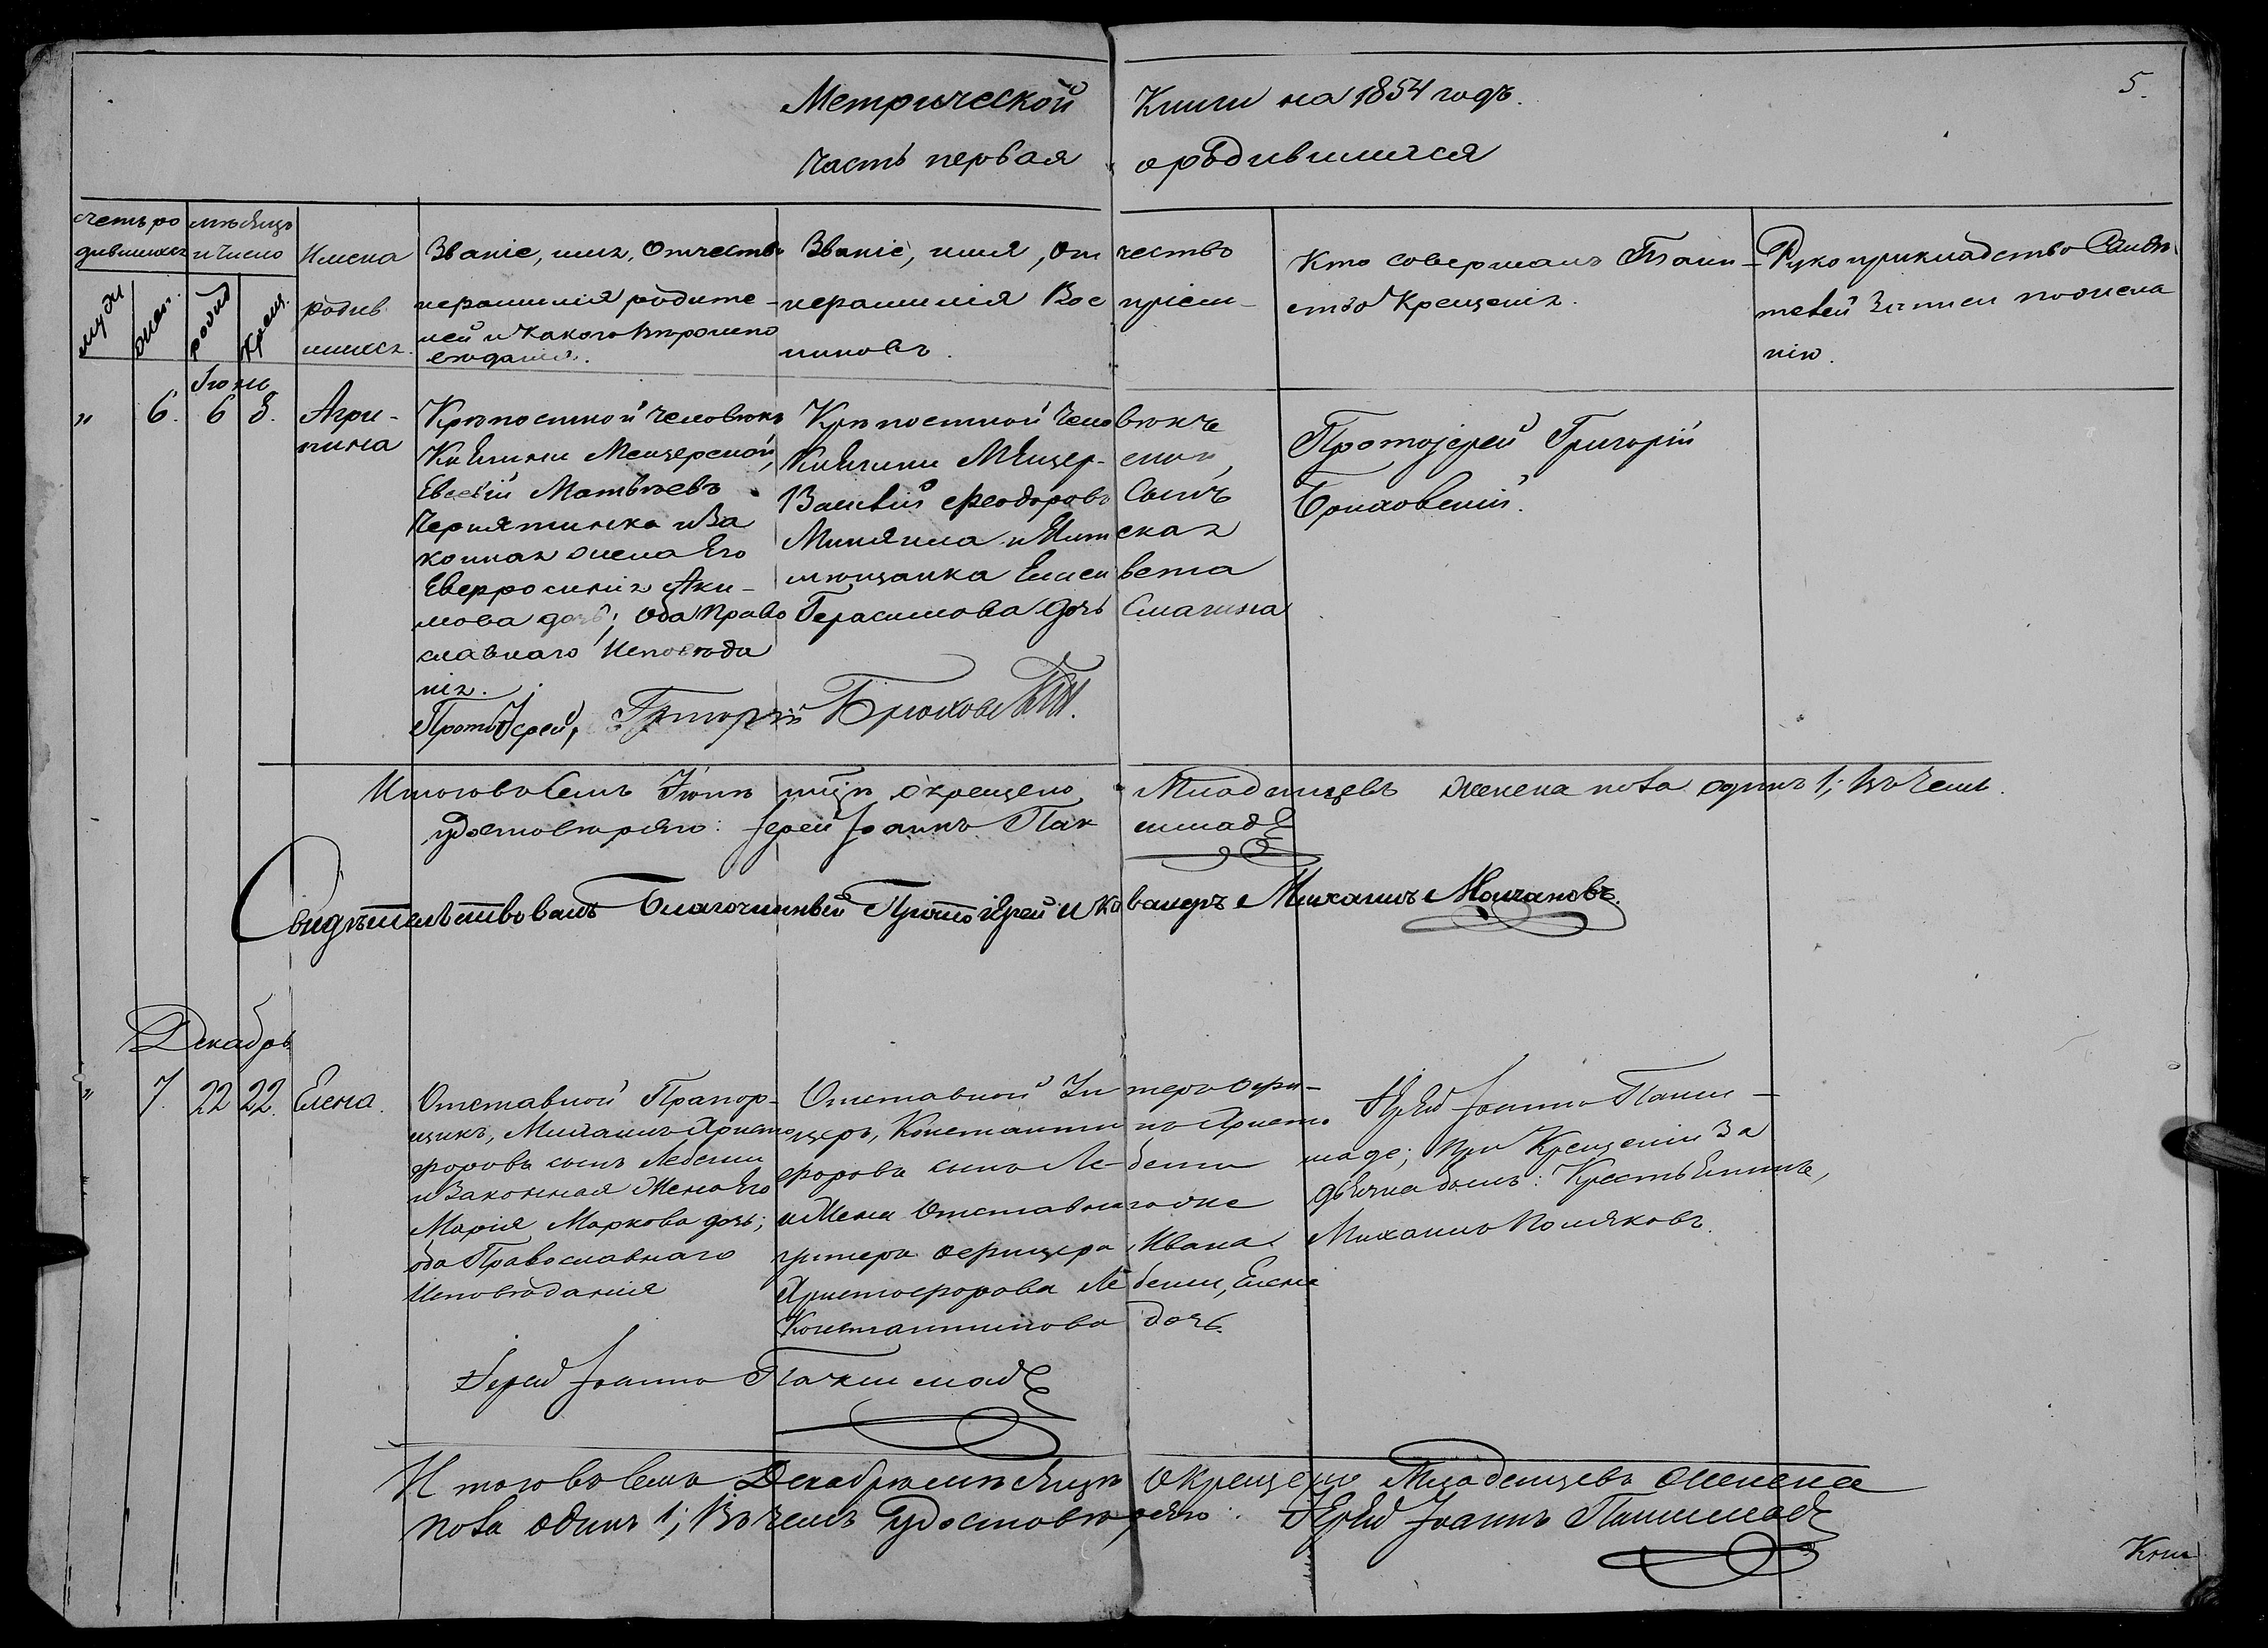 5.
Метрической Книги на 1854 годъ.
Часть первая о родившихся
счетъ ро
дившихся
мужс.
женс.
мѣсяцъ
и число
рожд.
крещ.
Имена
родив
шихся.
Званіе, имя, Отчество
и фамилія родите-
лей и какого вѣроиспо
вѣданія.
Званіе, имя, отчество
и фамилія Воспріем-
никовъ.
Кто совершалъ Таин-
ство Крещенія.
Рукоприкладство Свидѣ-
телей записи по жела
нію.
Іюнь
„ 6. 6 8. Агри-
пина
Крѣпостной человѣкъ
Княгини Мещерской,
Евсевій Матвѣевъ
Чернятинско и за
конная жена Его
Евфросинія Аки-
мова дочь; оба Право
славнаго Исповѣда
нія.
Крѣпостной человѣкъ
Княгини Мещерской,
Василій Феодоровъ Сынъ
Минягина и Ялтская
мѣщанка Елисавета
Герасимова дочь Смагина
Протоіерей Григорій
Брюховскій.
Протоіерей, Григорій Брюховскій.
Итого въ Семъ Іюнѣ мцѣ окрещено Младенцевъ женска пола одинъ 1; въ чемъ
удостовѣряю: Іерей Іоаннъ Пашмаде
Свидѣтельствовалъ Благочинный Протоіерей и Кавалеръ Михаилъ Молчановъ.
Декабрь
„ 7. 22 22. Елена.
Отставной Прапор-
щикъ, Михаилъ Христо
форовъ сынъ Лебеши
и Законная Жена Его
Марія Маркова дочь;
оба Православнаго
Исповѣданія
Отставной Унтеръ офи-
церъ, Константинъ Христо
форовъ сынъ Лебеши
и Жена Отставнаго же
унтеръ офицера, Ивана
Христофорова Лебеши, Елена
Константинова дочь.
Іерей Іоаннъ Пашн-
маде; при Крещеніи За
дьячка былъ: Крестьянинъ,
Михаилъ Поляковъ.
Іерей Іоаннъ Пашнмаде
Итого въ семъ Декабрѣ мѣсяцѣ окрещено Младенцевъ женска
пола одинъ 1; Въ чемъ удостовѣряю: Іерей Іоаннъ Пашнмаде
Кни